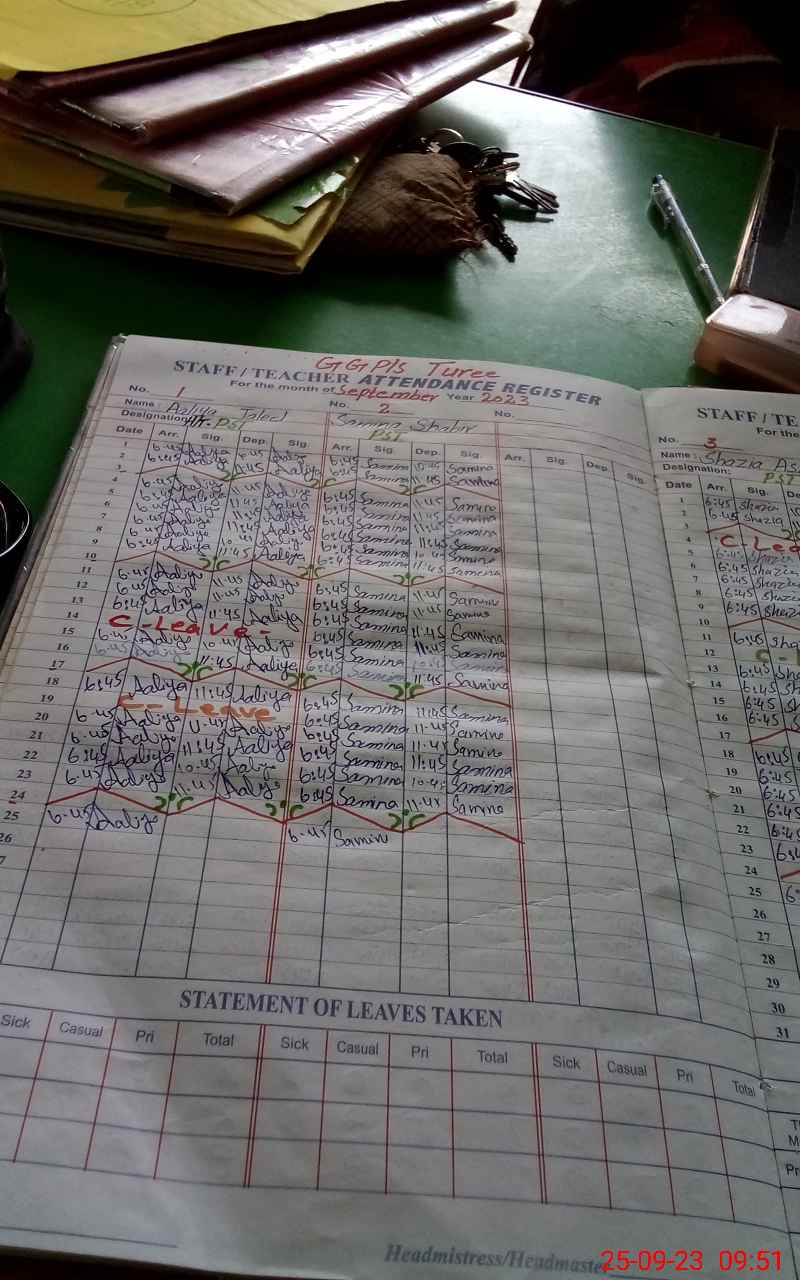 GGP/s Turee
STAFF / TEACHER ATTENDANCE REGISTER
For the month of September Year 2023
No. 1 No. 2 No.
Name: Aaliya Samina Shabir
Designation: PST PST
Date Arr. Sig. Dep. Sig. Arr. Sig. Dep. Sig. Arr. Sig. Dep. Sig.
1 6:45 Aaliya Samina Samina
2 6:45 Aaliya 11:45 Aaliya 6:45 Samina 11:45 Samina
3
4 6:45 Aaliya 11:45 Aaliya 6:45 Samina 11:45 Samina
5 6:45 Aaliya 11:45 Aaliya 6:45 Samina 11:45 Samina
6 6:45 Aaliya 11:45 Aaliya 6:45 Samina 11:45 Samina
7 6:45 Aaliya 11:45 Aaliya 6:45 Samina 11:45 Samina
8 6:45 Aaliya 10:45 Aaliya 6:45 Samina 10:45 Samina
9 6:45 Aaliya 11:45 Aaliya 6:45 Samina 11:45 Samina
10
11 6:45 Aaliya 11:45 Aaliya 6:45 Samina 11:45 Samina
12 6:45 Aaliya 11:45 Aaliya 6:45 Samina 11:45 Samina
13 6:45 Aaliya 11:45 Aaliya 6:45 Samina 11:45 Samina
14 C-Leave- 6:45 Samina 11:45 Samina
15 6:45 Aaliya 10:45 Aaliya 6:45 Samina 10:45 Samina
16 6:45 Aaliya 11:45 Aaliya 6:45 Samina 11:45 Samina
17
18 6:45 Aaliya 11:45 Aaliya 6:45 Samina 11:45 Samina
19 C-Leave 6:45 Samina 11:45 Samina
20 6:45 Aaliya 11:45 Aaliya 6:45 Samina 11:45 Samina
21 6:45 Aaliya 11:45 Aaliya 6:45 Samina 11:45 Samina
22 6:45 Aaliya 10:45 Aaliya 6:45 Samina 10:45 Samina
23 6:45 Aaliya 11:45 Aaliya 6:45 Samina 11:45 Samina
24
25 6:45 Aaliya 6:45 Samina
26
7
STATEMENT OF LEAVES TAKEN
Sick Casual Pri Total Sick Casual Pri Total Sick Casual Pri Total
Headmistress/Headmaste
STAFF / TE
For the
No. 3
Name: Shazia
Designation: PST
Date Arr. Sig.
1 6:45 Shazia
2 6:45 Shazia
3
4 C-Lea
5 6:45 Shazia
6 6:45 Shazia
7 6:45 Shazia
8 6:45 Shazia
9 6:45 Shazia
10
11 6:45 Sha
12 C-
13 6:45 Sha
14 6:45 Sh
15 6:45 S
16 6:45 S
17
18 6:45
19 6:45
20 6:45
21 6:45
22 6:45
23
24
25
26
27
28
29
30
31
25-09-23 09:51